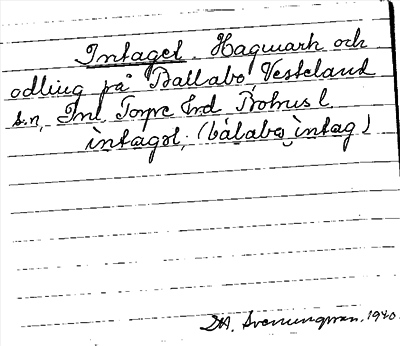 Intaget Hagmark och
odling på Ballabo, Västeland
s.n, Inl Torpe hrd Bohus l.
intagət, (bàlabo intag)
D.A. Svenungsson. 1940.